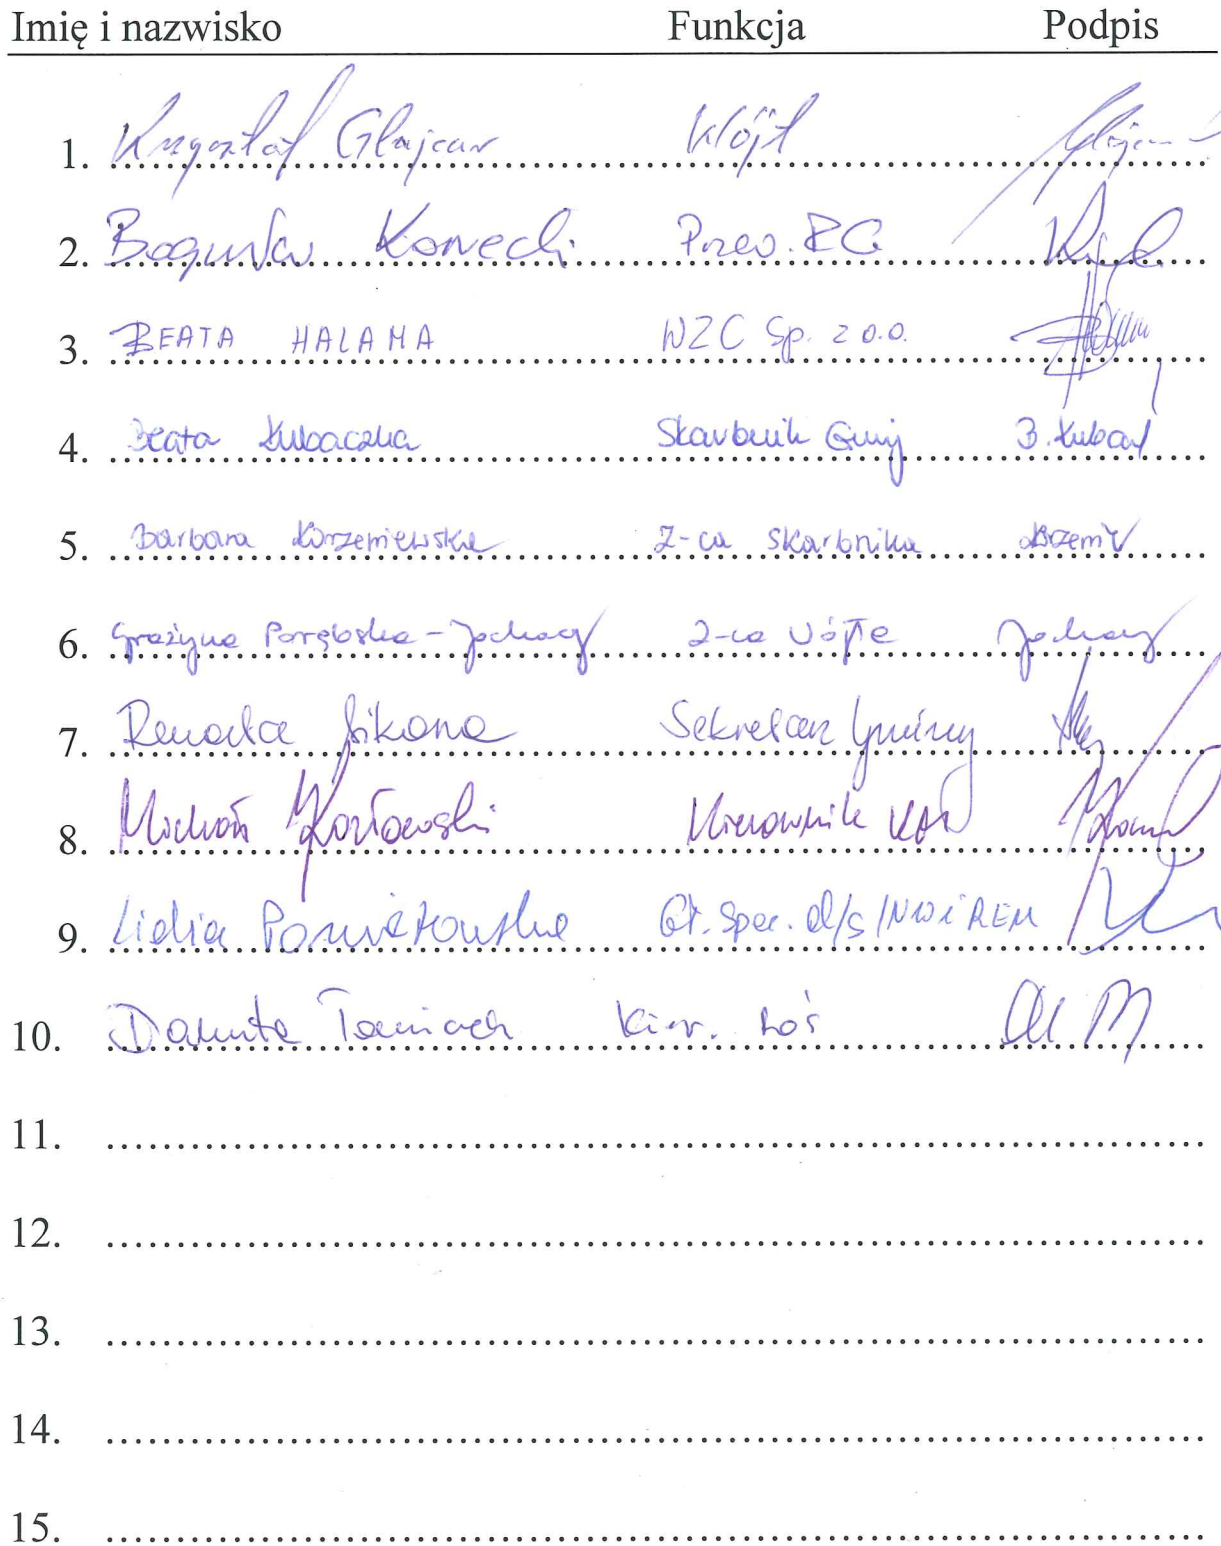 Imię i nazwisko Funkcja Podpis
1. Krzysztof Glajcar Wójt
2. Bogusław Konecki Przew. RG
3. BEATA HALAMA WZC Sp. z o.o.
4. Beata Kubaczka Skarbnik Gminy B. Kubac
5. Barbara Korzeniewska Z-ca skarbnika
6. Grażyna Porębska-Jochacy Z-ca Wójta Jochacy
7. Renata Sikora Sekretarz Gminy
8. Michał Kozłowski Kierownik
9. Lidia Gł. Spec. d/s
10. Danuta Kier.
11.
12.
13.
14.
15.